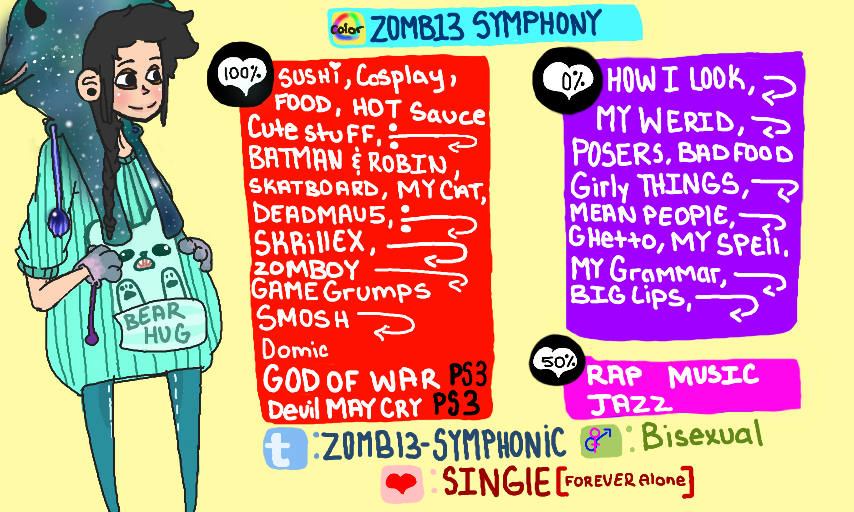 color ZOMB13 SYMPHONY
100%
SUSHi, Cosplay,
FOOD, HOT Sauce
Cute stuFF,:
BATMAN & ROBIN,
SKATBOARD, MY CAT,
DEADMAU5,:
SKRillEX,
ZOMBOY
GAME Grumps
SMOSH
Domic
GOD OF WAR PS3
Devil MAY CRY PS3
0%
HOW I LOOK,
MY WERID,
POSERS, BAD FOOD
Girly THINGS,
MEAN PEOPlE,
GHetto, MY SPEll.
MY Grammar,
BIG Lips,
50%
RAP MUSIC
JAZZ
BEAR
HUG
t :ZOMB13-SYMPHONIC
:Bisexual
:SINGlE [FOREVER Alone]